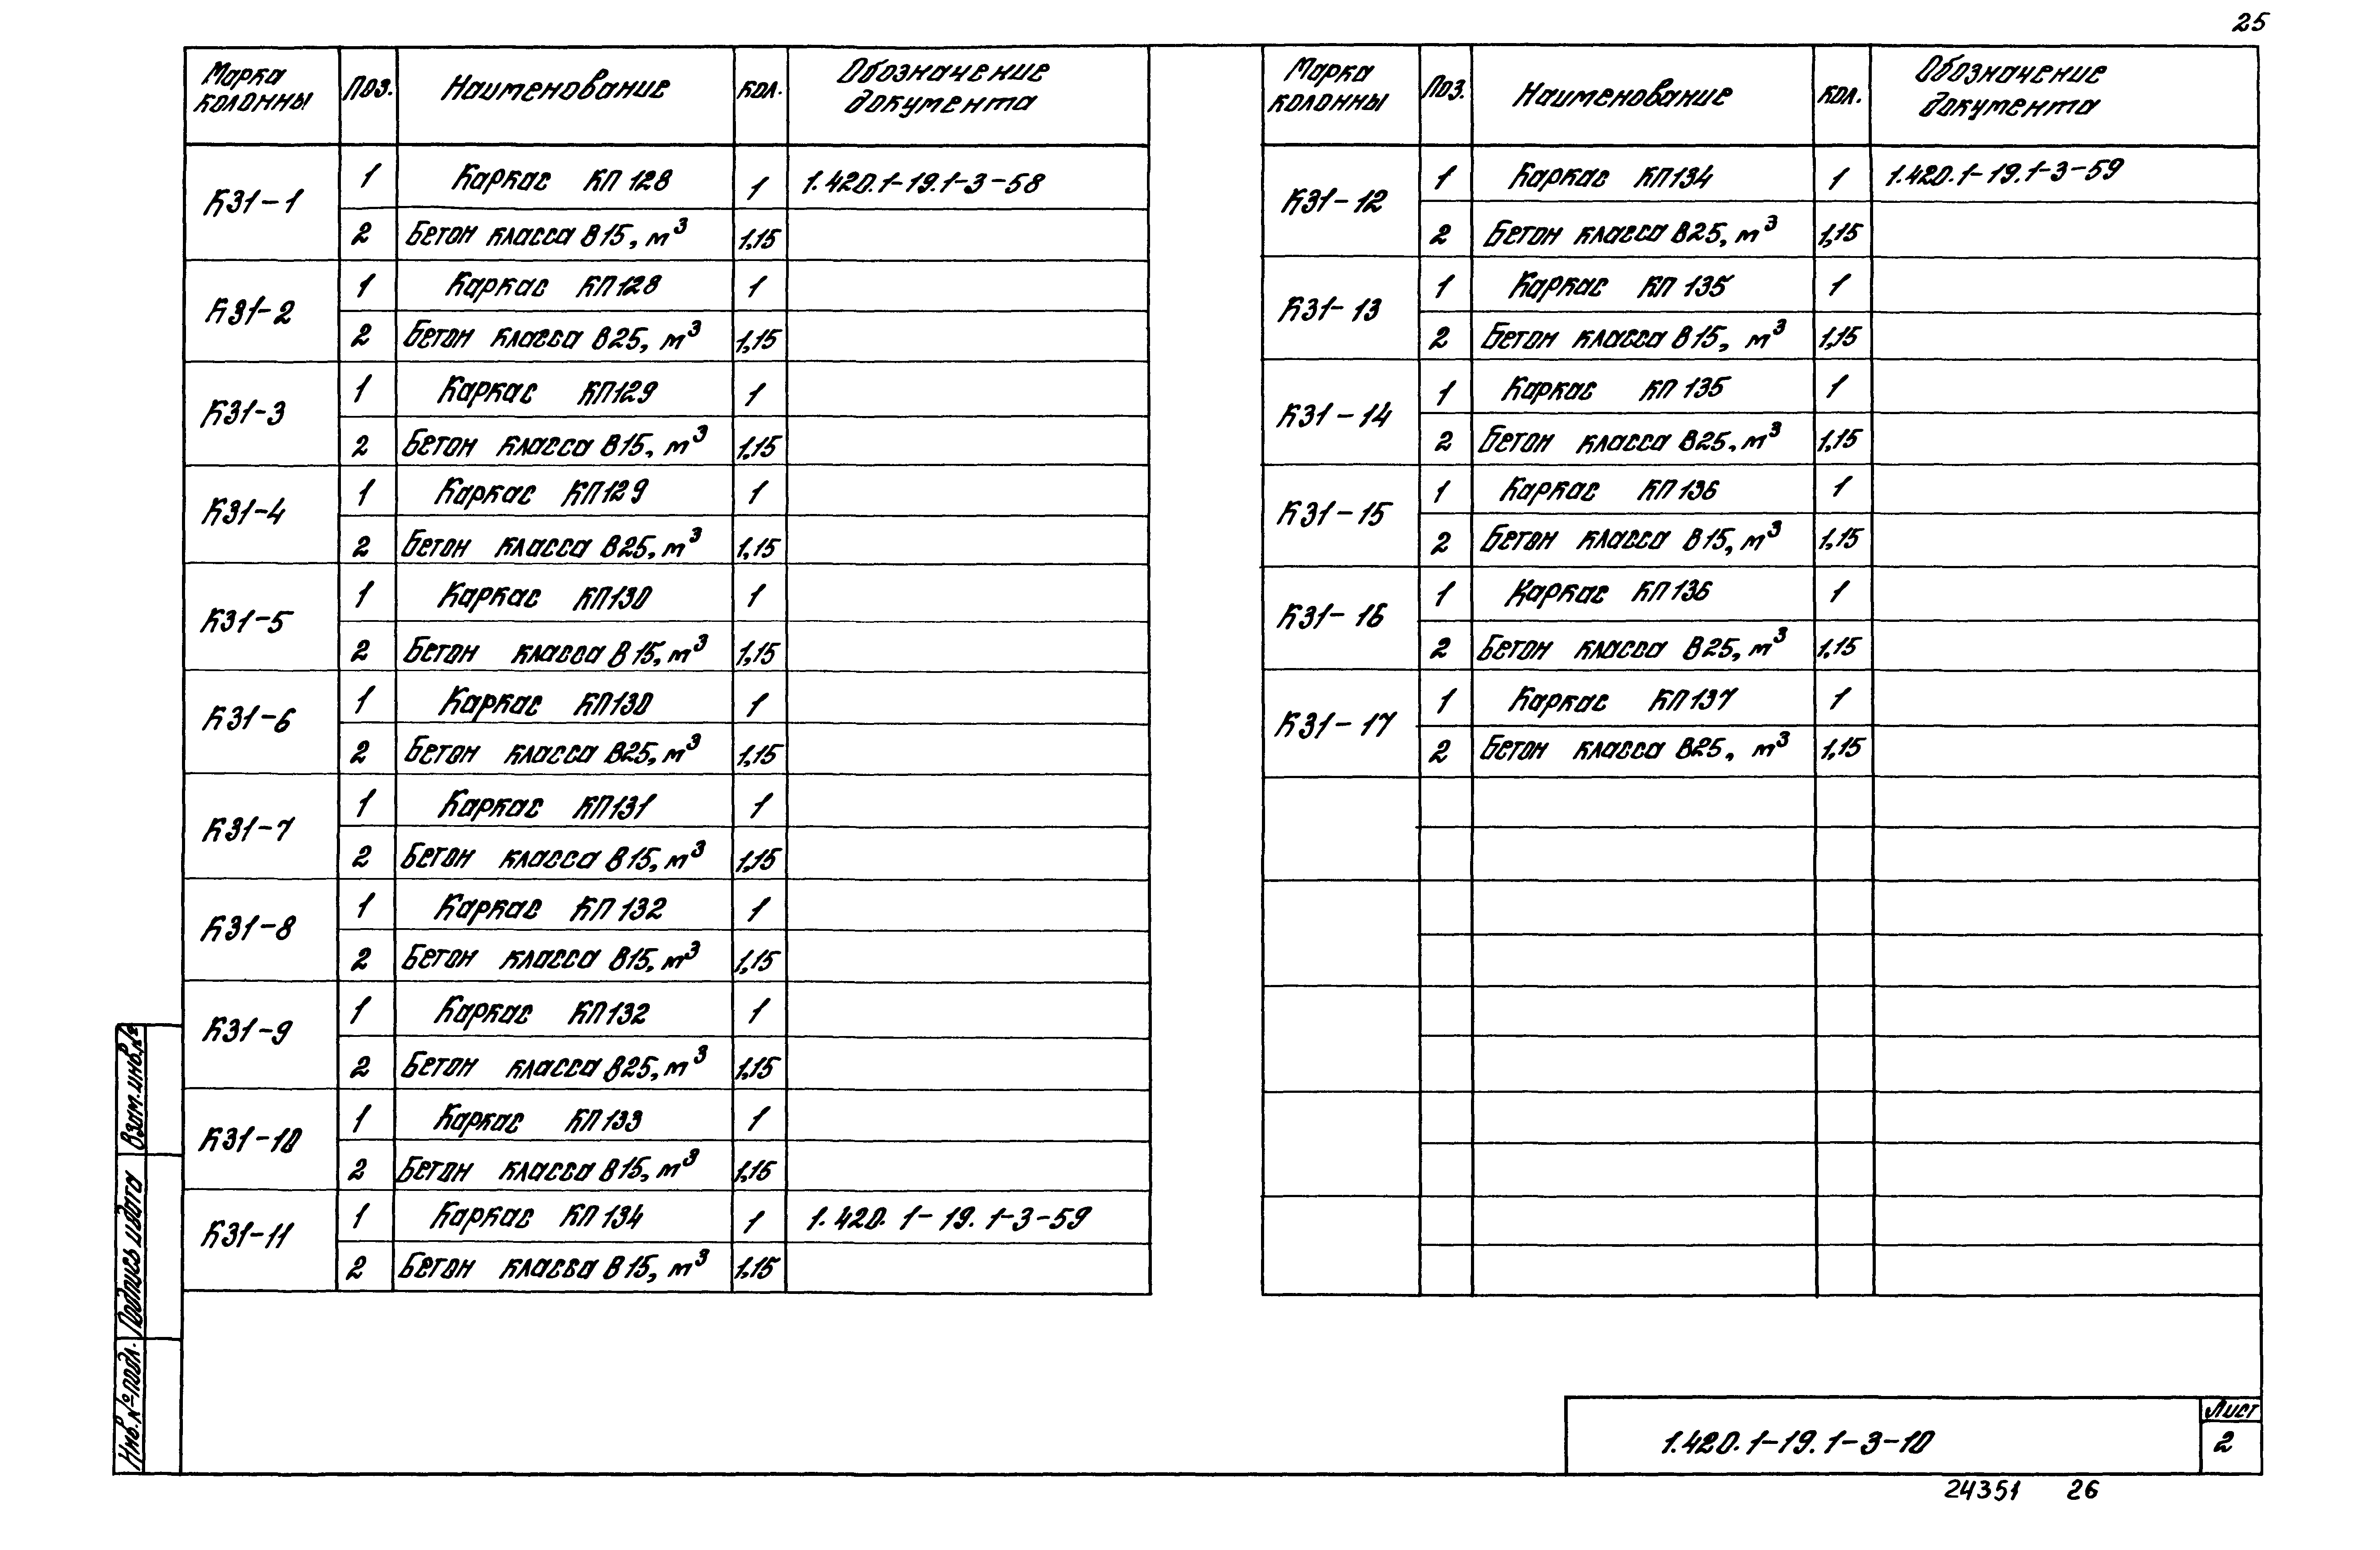 25
Марка колонны Поз. Наименование Кол. Обозначение документа
К31-1 1 Каркас КП128 1 1.420.1-19.1-3-58
2 Бетон класса В15, м³ 1,15
К31-2 1 Каркас КП128 1
2 Бетон класса В25, м³ 1,15
К31-3 1 Каркас КП129 1
2 Бетон класса В15, м³ 1,15
К31-4 1 Каркас КП129 1
2 Бетон класса В25, м³ 1,15
К31-5 1 Каркас КП130 1
2 Бетон класса В15, м³ 1,15
К31-6 1 Каркас КП130 1
2 Бетон класса В25, м³ 1,15
К31-7 1 Каркас КП131 1
2 Бетон класса В15, м³ 1,15
К31-8 1 Каркас КП132 1
2 Бетон класса В15, м³ 1,15
К31-9 1 Каркас КП132 1
2 Бетон класса В25, м³ 1,15
К31-10 1 Каркас КП133 1
2 Бетон класса В15, м³ 1,15
К31-11 1 Каркас КП134 1 1.420.1-19.1-3-59
2 Бетон класса В15, м³ 1,15
Марка колонны Поз. Наименование Кол. Обозначение документа
К31-12 1 Каркас КП134 1 1.420.1-19.1-3-59
2 Бетон класса В25, м³ 1,15
К31-13 1 Каркас КП135 1
2 Бетон класса В15, м³ 1,15
К31-14 1 Каркас КП135 1
2 Бетон класса В25, м³ 1,15
К31-15 1 Каркас КП136 1
2 Бетон класса В15, м³ 1,15
К31-16 1 Каркас КП136 1
2 Бетон класса В25, м³ 1,15
К31-17 1 Каркас КП137 1
2 Бетон класса В25, м³ 1,15
Взам.инв.№
Подпись и дата
Инв.№ подл.
1.420.1-19.1-3-10
Лист
2
24351 26